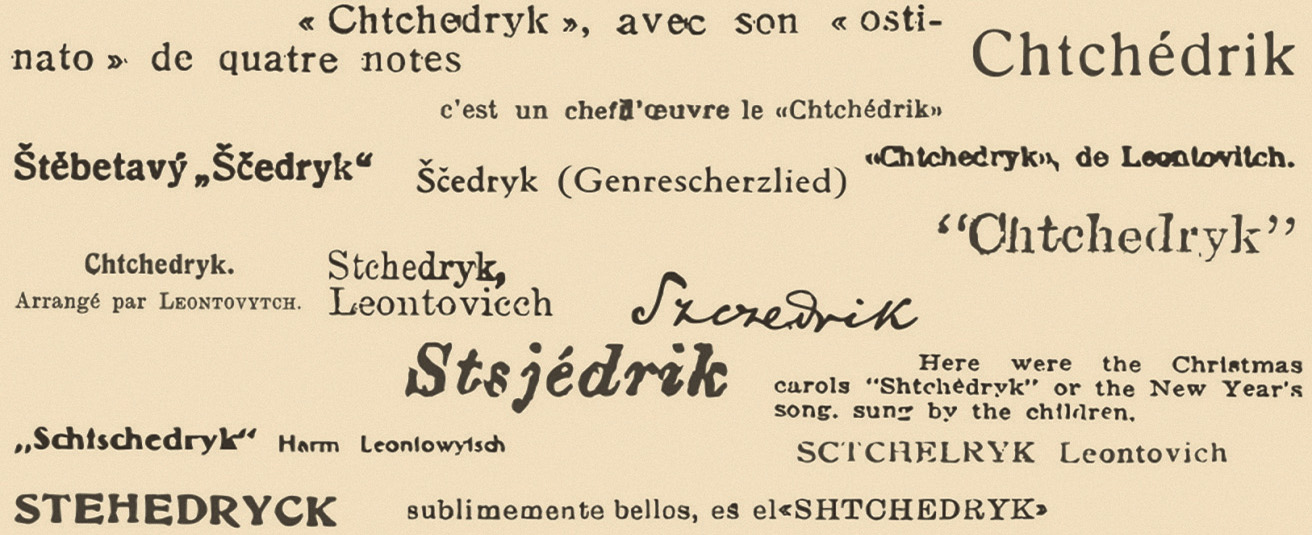 « Chtchedryk », avec son « osti-
nato » de quatre notes
Chtchédrik
c'est un chef d'œuvre le «Chtchédrik»
Štěbetavý „Ščedryk“
Ščedryk (Genrescherzlied)
«Chtchedryk», de Leontovitch.
“Chtchedryk”
Chtchedryk.
Arrangé par LEONTOVYTCH.
Stchedryk,
Leontovicch
Szczedrik
Stsjédrik
Here were the Christmas
carols "Shtchèdryk" or the New Year's
song. sung by the children.
„Schtschedryk“ Harm Leontowytsch
SCTCHELRYK Leontovich
STEHEDRYCK
sublimemente bellos, es el «SHTCHEDRYK»